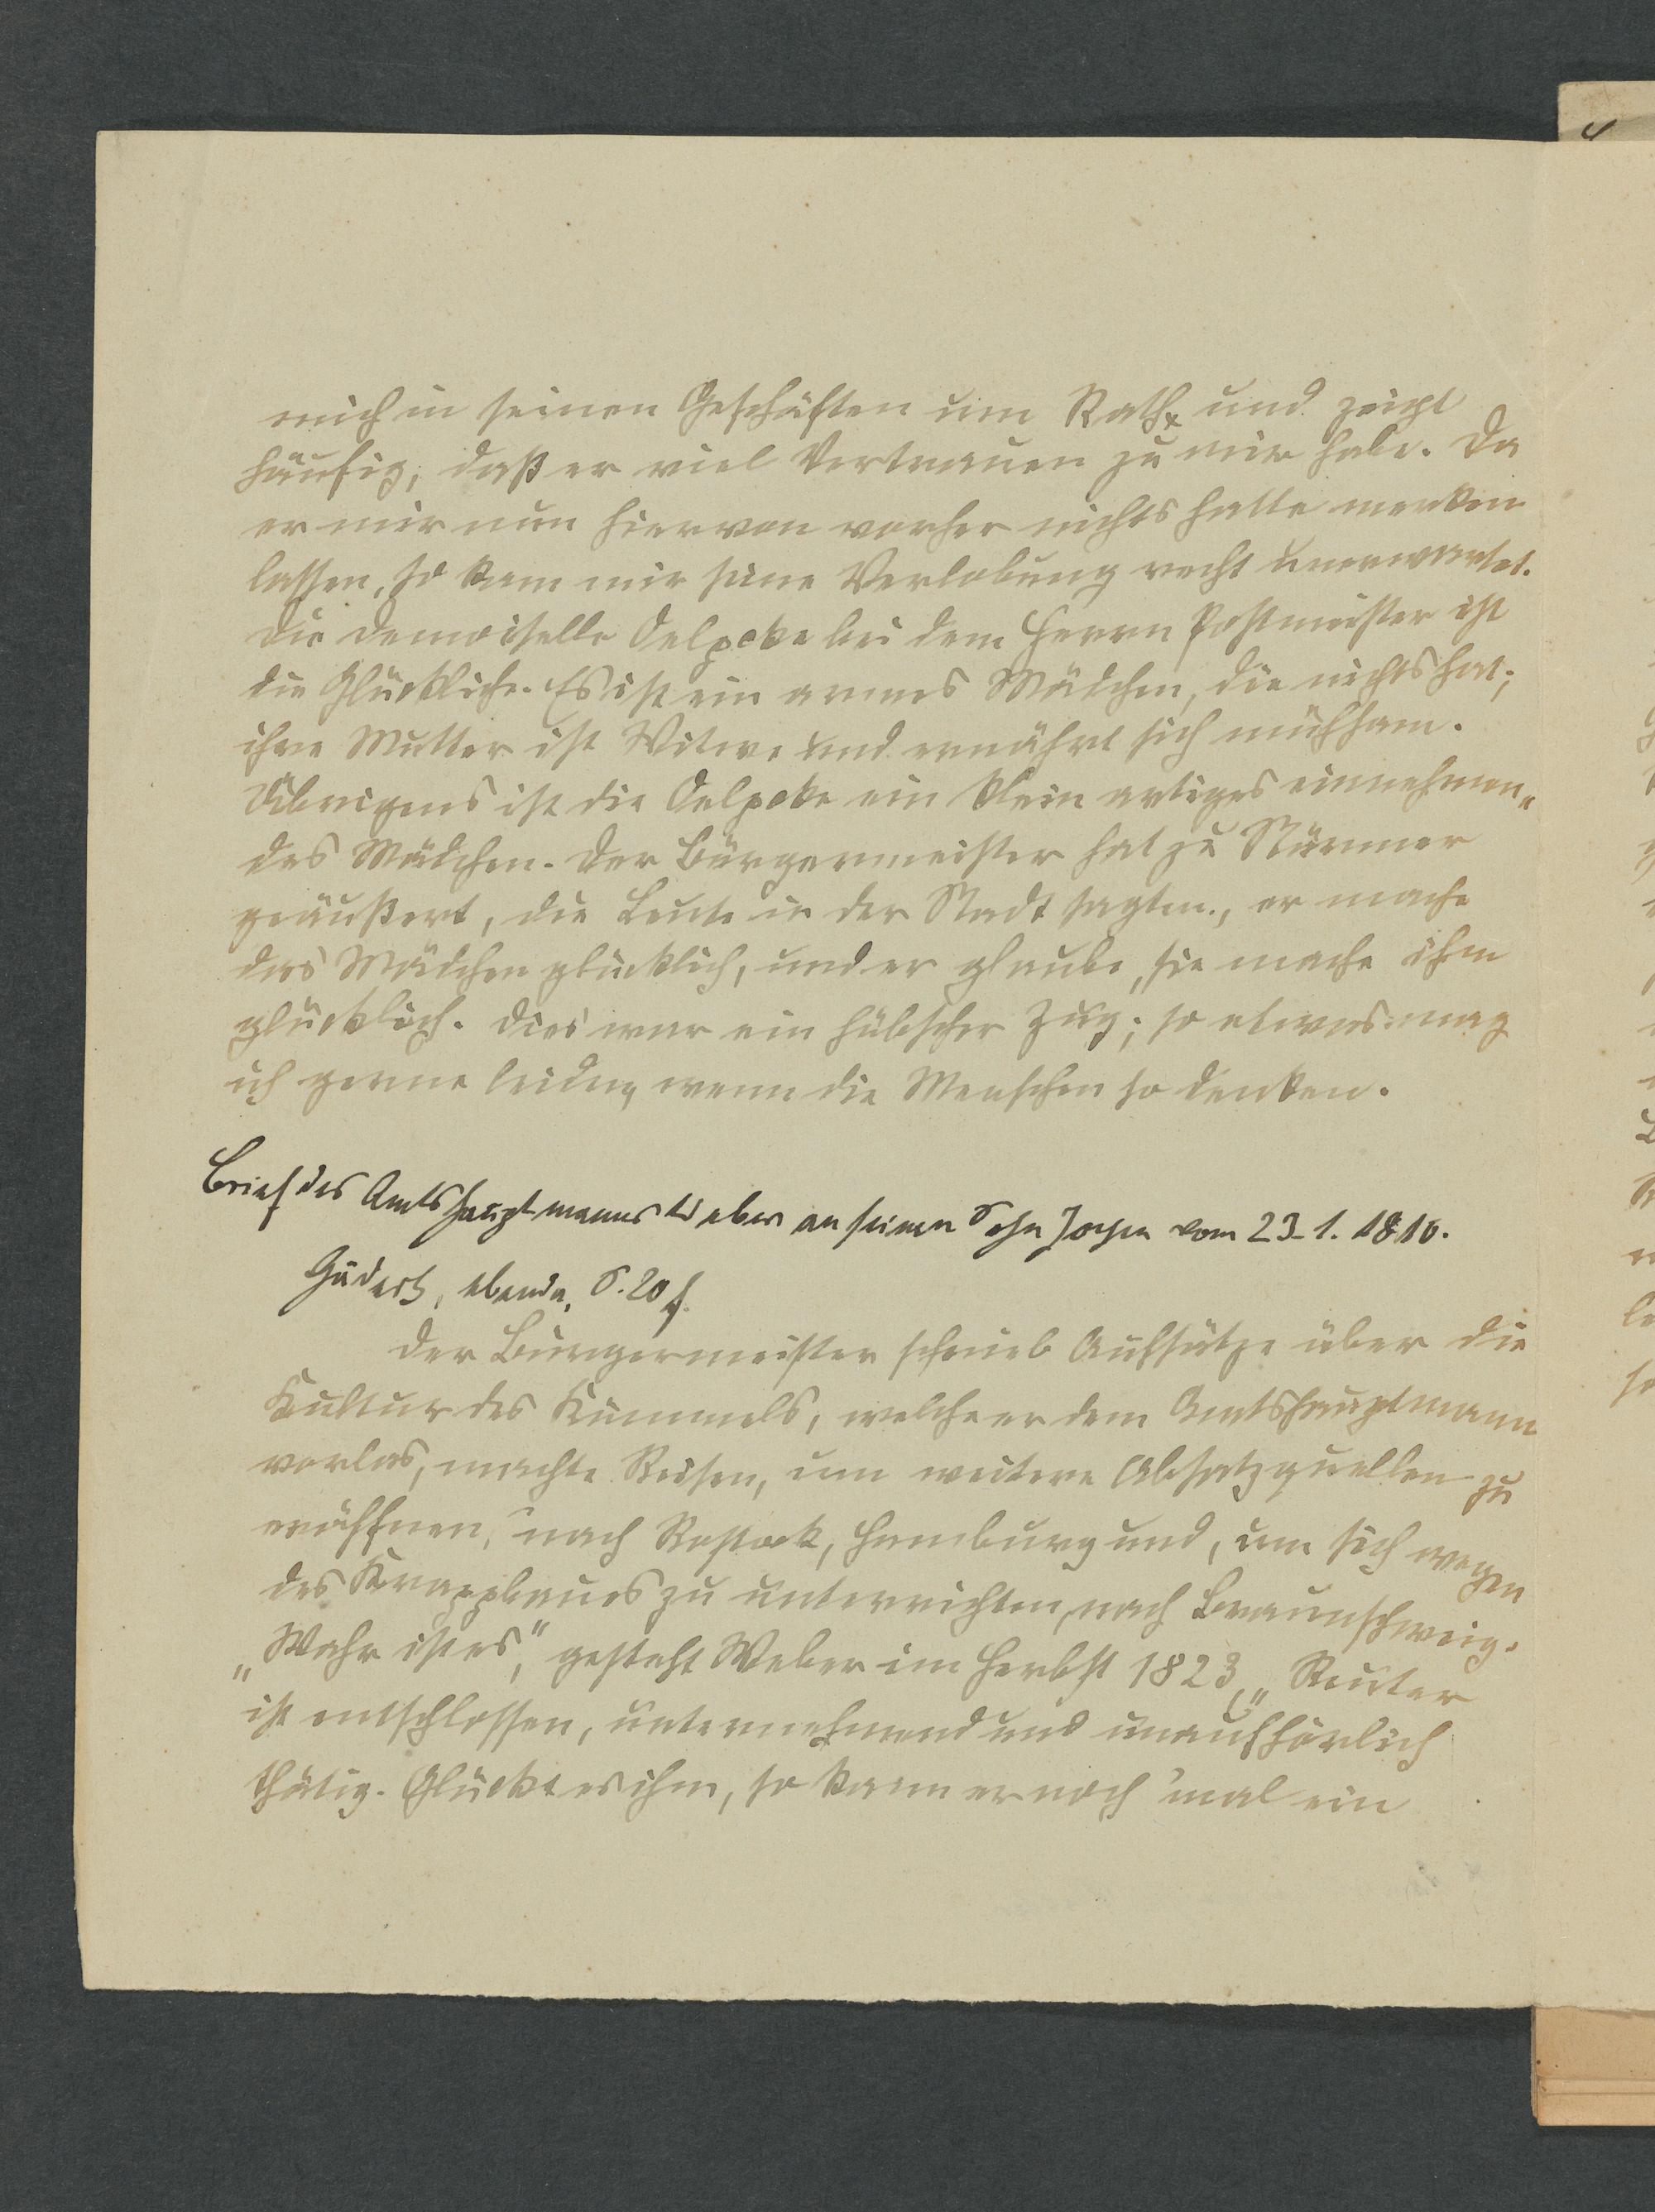 mich in seinen Geschäften um Rath und zeigt
häufig, daß er viel Vertrauen zu mir habe. Da
er mir nun hiervon vorher nichts hatte merken
lassen, so kam mir seine Verlobung recht unerwartet.
Die Demoiselle Oelpcke bei dem Herrn Postmeister ist
die Glückliche. Es ist ein armes Mädchen, die nichts hat;
ihre Mutter ist Witwe und ernährt sich mühsam.
Übrigens ist die Oelpcke ein klein artiges einnehmen-
des Mädchen. Der Bürgermeister hat zu Stürmer
geäußert, die Leute in der Stadt sagten, er mache
das Mädchen glücklich, und er glaube, sie mache ihn
glücklich. Dies war ein hübscher Zug; so etwas mag
ich gerne leiden, wenn die Menschen so denken.
Brief des Amtshauptmanns Weber an seinen Sohn Jochen vom 23.1.1810.
Gaedertz, ebenda, S. 20 f.
Der Bürgermeister schrieb Aufsätze über die
Kultur des Kümmels, welche er dem Amtshauptmann
vorlas, machte Reisen, um weitere Absatzquellen zu
eröffnen, nach Rostock, Hamburg und, um sich wegen
des Krappbaues zu unterrichten, nach Braunschweig.
„Wahr ist es," gesteht Weber im Herbst 1823, „Reuter
ist entschlossen, unternehmend und unaufhörlich
thätig. Glückt es ihm, so kann er noch 'mal ein